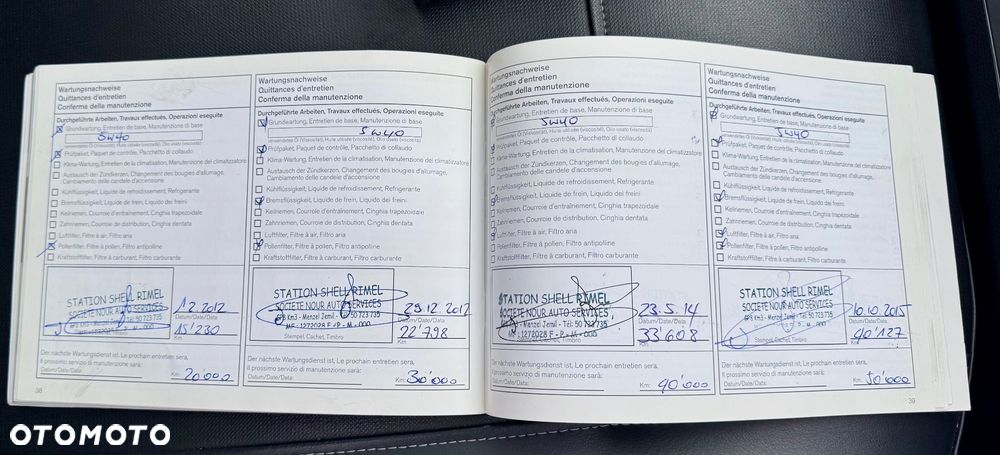 Wartungsnachweise
Quittances d'entretien
Conferma della manutenzione
Durchgeführte Arbeiten, Travaux effectués, Operazioni eseguite
Grundwartung, Entretien de base, Manutenzione di base
5W40
Prüfpaket, Paquet de contrôle, Pacchetto di collaudo
Klima-Wartung, Entretien de la climatisation, Manutenzione del climatizzatore
Austausch der Zündkerzen, Changement des bougies d'allumage,
Cambiamento delle candele d'accensione
Kühlflüssigkeit, Liquide de refroidissement, Refrigerante
Bremsflüssigkeit, Liquide de frein, Liquido dei freini
Keilriemen, Courroie d'entraînement, Cinghia trapezoidale
Zahnriemen, Courroie de distribution, Cinghia dentata
Luftfilter, Filtre à air, Filtro aria
Pollenfilter, Filtre à pollen, Filtro antipolline
Kraftstofffilter, Filtre à carburant, Filtro carburante
STATION SHELL RIMEL
SOCIETE NOUR AUTO SERVICES
1.2.2012
Datum/Date/Data
15'230
Km
Der nächste Wartungsdienst ist, Le prochain entretien sera,
Il prossimo servizio di manutenzione sarà:
Datum/Date/Data:
Km:
20'000
38
Wartungsnachweise
Quittances d'entretien
Conferma della manutenzione
Durchgeführte Arbeiten, Travaux effectués, Operazioni eseguite
Grundwartung, Entretien de base, Manutenzione di base
5W40
Prüfpaket, Paquet de contrôle, Pacchetto di collaudo
Klima-Wartung, Entretien de la climatisation, Manutenzione del climatizzatore
Austausch der Zündkerzen, Changement des bougies d'allumage,
Cambiamento delle candele d'accensione
Kühlflüssigkeit, Liquide de refroidissement, Refrigerante
Bremsflüssigkeit, Liquide de frein, Liquido dei freini
Keilriemen, Courroie d'entraînement, Cinghia trapezoidale
Zahnriemen, Courroie de distribution, Cinghia dentata
Luftfilter, Filtre à air, Filtro aria
Pollenfilter, Filtre à pollen, Filtro antipolline
Kraftstofffilter, Filtre à carburant, Filtro carburante
STATION SHELL RIMEL
SOCIETE NOUR AUTO SERVICES
Km3 - Menzel Jemil - Tél: 50 723 735
MF: 1272028 F - P - M - 000
Stempel, Cachet, Timbro
29.12.2012
Datum/Date/Data
22'798
Km
Der nächste Wartungsdienst ist, Le prochain entretien sera,
Il prossimo servizio di manutenzione sarà:
Datum/Date/Data:
Km:
30'000
Wartungsnachweise
Quittances d'entretien
Conferma della manutenzione
Durchgeführte Arbeiten, Travaux effectués, Operazioni eseguite
Grundwartung, Entretien de base, Manutenzione di base
5W40
Prüfpaket, Paquet de contrôle, Pacchetto di collaudo
Klima-Wartung, Entretien de la climatisation, Manutenzione del climatizzatore
Austausch der Zündkerzen, Changement des bougies d'allumage,
Cambiamento delle candele d'accensione
Kühlflüssigkeit, Liquide de refroidissement, Refrigerante
Bremsflüssigkeit, Liquide de frein, Liquido dei freini
Keilriemen, Courroie d'entraînement, Cinghia trapezoidale
Zahnriemen, Courroie de distribution, Cinghia dentata
Luftfilter, Filtre à air, Filtro aria
Pollenfilter, Filtre à pollen, Filtro antipolline
Kraftstofffilter, Filtre à carburant, Filtro carburante
STATION SHELL RIMEL
SOCIETE NOUR AUTO SERVICES
Km3 - Menzel Jemil - Tél: 50 723 735
MF: 1272028 F - P - M - 000
Cachet, Timbro
23.5.14
Datum/Date/Data
33'608
Km
Der nächste Wartungsdienst ist, Le prochain entretien sera,
Il prossimo servizio di manutenzione sarà:
Datum/Date/Data:
Km:
40'000
Wartungsnachweise
Quittances d'entretien
Conferma della manutenzione
Durchgeführte Arbeiten, Travaux effectués, Operazioni eseguite
Grundwartung, Entretien de base, Manutenzione di base
5W40
Prüfpaket, Paquet de contrôle, Pacchetto di collaudo
Klima-Wartung, Entretien de la climatisation, Manutenzione del climatizzatore
Austausch der Zündkerzen, Changement des bougies d'allumage,
Cambiamento delle candele d'accensione
Kühlflüssigkeit, Liquide de refroidissement, Refrigerante
Bremsflüssigkeit, Liquide de frein, Liquido dei freini
Keilriemen, Courroie d'entraînement, Cinghia trapezoidale
Zahnriemen, Courroie de distribution, Cinghia dentata
Luftfilter, Filtre à air, Filtro aria
Pollenfilter, Filtre à pollen, Filtro antipolline
Kraftstofffilter, Filtre à carburant, Filtro carburante
STATION SHELL RIMEL
SOCIETE NOUR AUTO SERVICES
Km3 - Menzel Jemil - Tél: 50 723 735
Stempel, Cachet, Timbro
10.10.2015
Datum/Date/Data
40'127
Km
Der nächste Wartungsdienst ist, Le prochain entretien sera,
Il prossimo servizio di manutenzione sarà:
Datum/Date/Data:
Km:
50'000
39
OTOMOTO